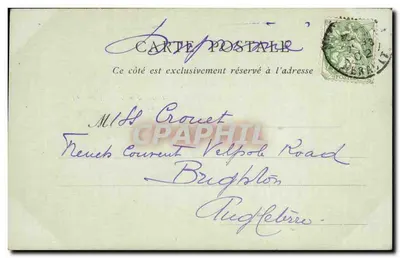 Imprimé
CARTE POSTALE
Ce côté est exclusivement réservé à l'adresse
Miss Crouet
CPARAMA
French Convent Walpole Road
Brighton
Angleterre